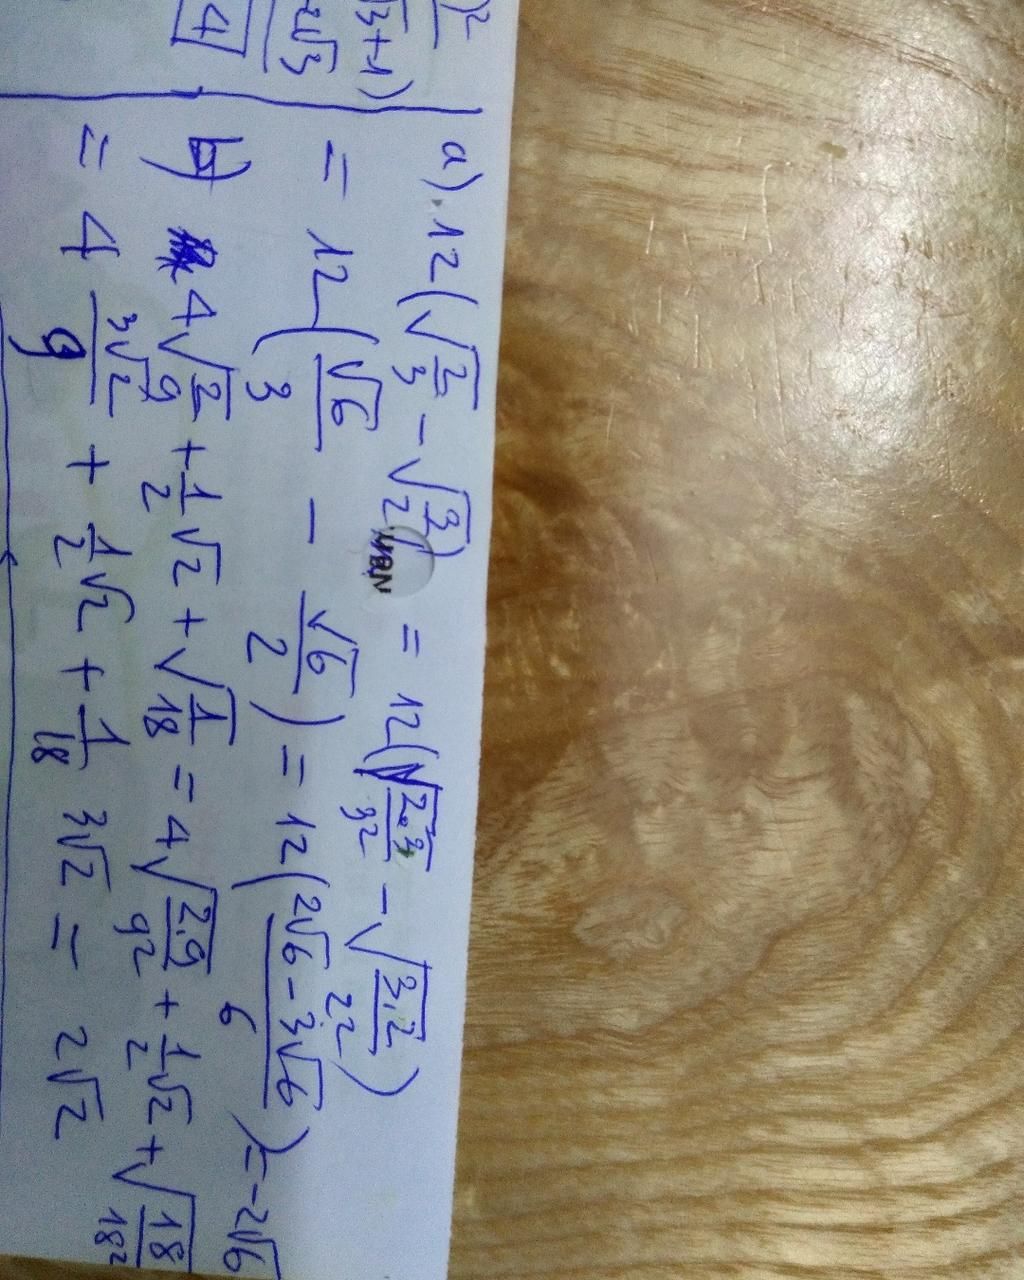 )²
√3+1)
-2√3
4
a) 12(√2/3 - √3/2) = 12(√2.3/3² - √3.2/2²)
= 12(√6/3 - √6/2) = 12(2√6-3√6/6) = -2√6
b) 4√2/9 + 1/2√2 + √1/18 = 4√2.9/9² + 1/2√2 + √18/18²
= 4 3√2/9 + 1/2√2 + 1/18 3√2 = 2√2